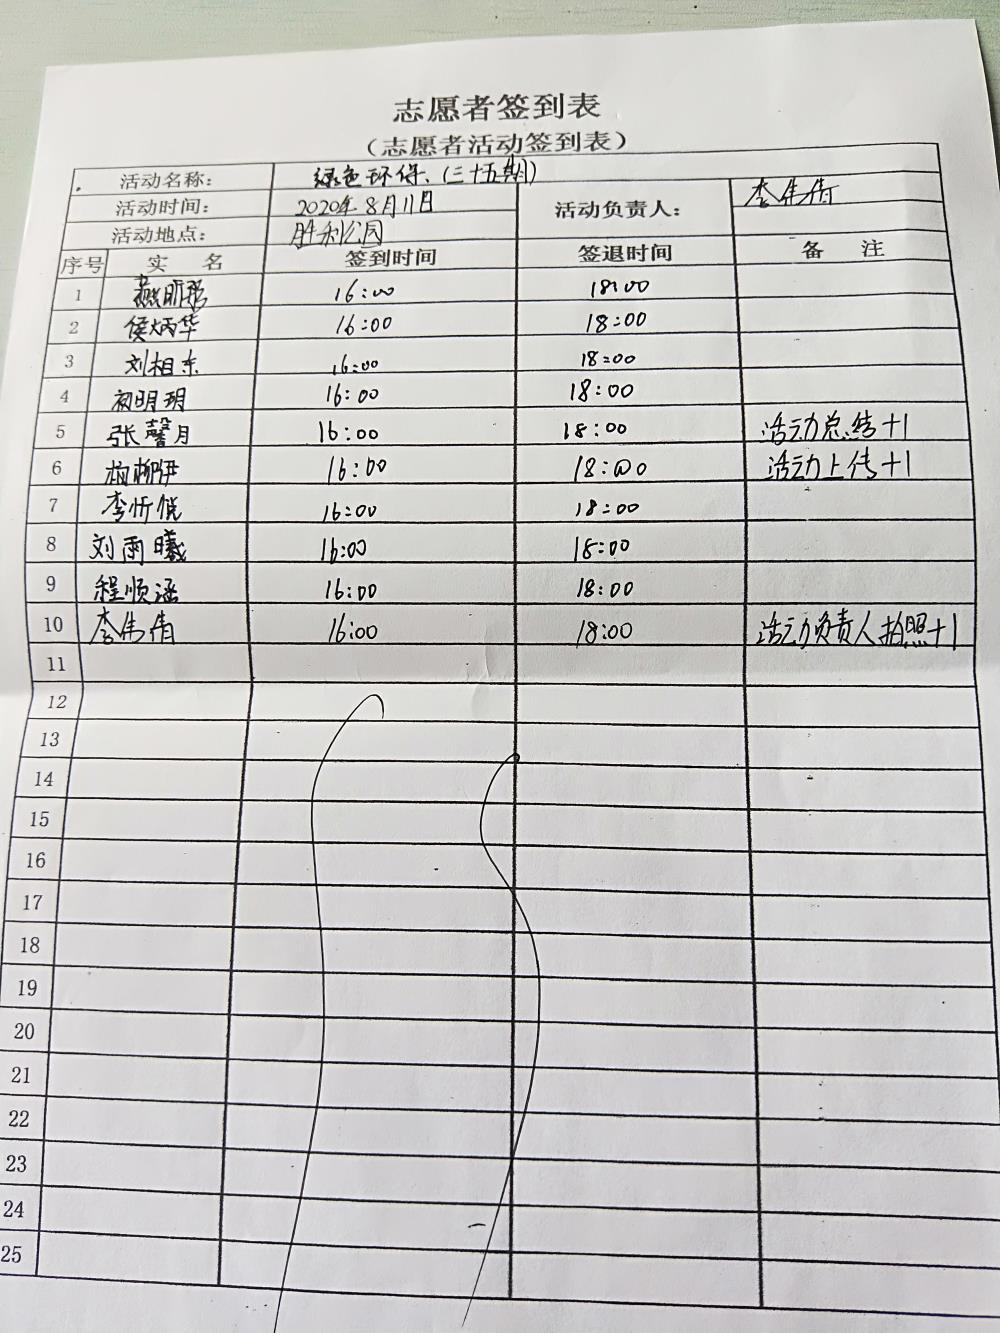 志愿者签到表
（志愿者活动签到表）
活动名称： 绿色环保、(三十五期)
活动时间： 2020年8月11日 活动负责人： 李伟倩
活动地点： 胜利公园
序号 实 名 签到时间 签退时间 备 注
1 明 16:00 18:00
2 侯炳华 16:00 18:00
3 刘相东 16:00 18:00
4 初明玥 16:00 18:00
5 张馨月 16:00 18:00 活动总结+1
6 16:00 18:00 活动上传+1
7 李忻悦 16:00 18:00
8 刘雨曦 16:00 18:00
9 程顺涵 16:00 18:00
10 李伟倩 16:00 18:00 活动负责人拍照+1
11
12
13
14
15
16
17
18
19
20
21
22
23
24
25